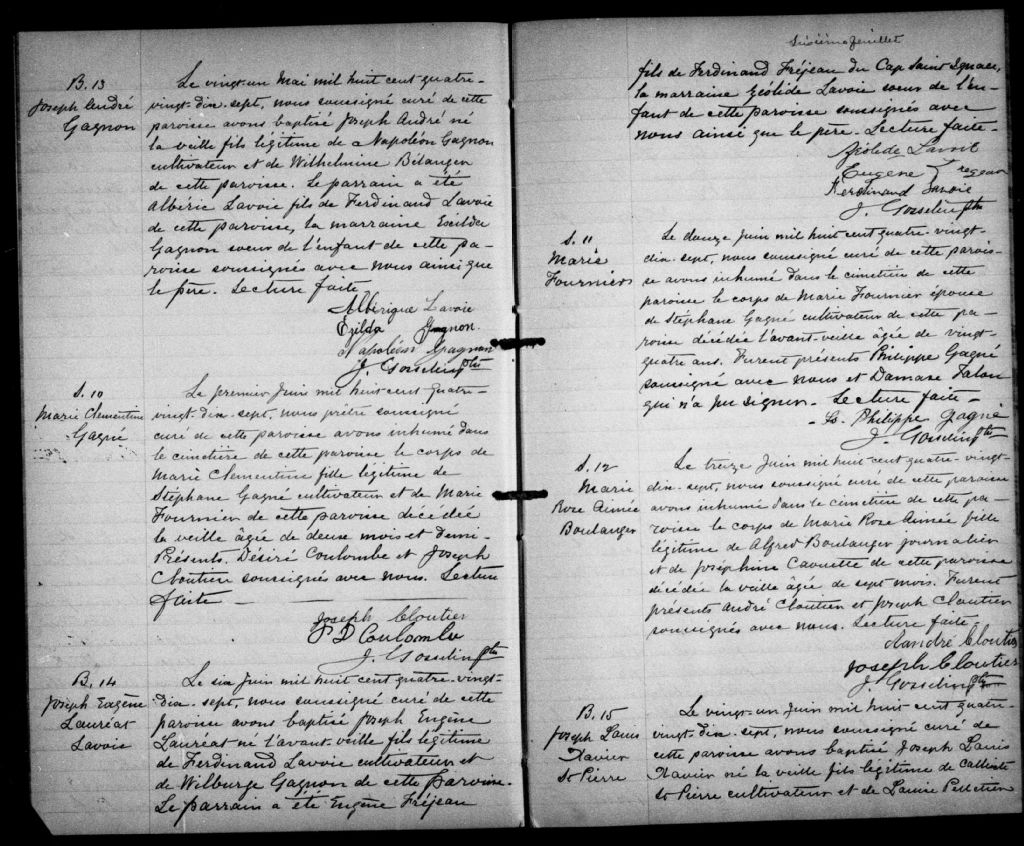 B. 13
Joseph André
Gagnon
Le vingt-un Mai mil huit cent quatre-
vingt-dix-sept, nous soussigné curé de cette
paroisse avons baptisé Joseph André né
la veille fils légitime de Napoléon Gagnon
cultivateur et de Wilhelmine Bélanger
de cette paroisse. Le parrain a été
Albéric Lavoie fils de Ferdinand Lavoie
de cette paroisse, la marraine Exilda
Gagnon soeur de l'enfant de cette pa-
roisse soussignés avec nous ainsi que
le père. Lecture faite
Albérique Lavoie
Exilda Gagnon
Napoléon Gagnon
J. Gosselin Ptre
S. 10
Marie Clementine
Gagné
Le premier Juin mil huit cent quatre-
vingt-dix-sept, nous prêtre soussigné
curé de cette paroisse avons inhumé dans
le cimetière de cette paroisse le corps de
Marie Clementine fille légitime de
Stéphane Gagné cultivateur et de Marie
Fournier de cette paroisse décédée
la veille âgée de deux mois et demi-
Présents. Désiré Coulombe et Joseph
Cloutier soussignés avec nous. Lecture
faite
Joseph Cloutier
P D Coulombe
J. Gosselin Ptre
B. 14
Joseph Eugène
Lauréat
Lavoie
Le six Juin mil huit cent quatre-vingt-
dix-sept, nous soussigné curé de cette
paroisse avons baptisé Joseph Eugène
Lauréat né l'avant-veille fils légitime
de Ferdinand Lavoie cultivateur et
de Wilburge Gagnon de cette paroisse.
Le parrain a été Eugène Fréjeau
Sixième feuillet
fils de Ferdinand Fréjeau du Cap Saint Ignace,
la marraine Zéolide Lavoie soeur de l'en-
fant de cette paroisse soussignés avec
nous ainsi que le père. Lecture faite-
Lavoie
Eugène Fregeau
Ferdinand Lavoie
J. Gosselin Ptre
S. 11
Marie
Fournier
Le douze Juin mil huit cent quatre-vingt-
dix-sept, nous soussigné curé de cette parois-
se avons inhumé dans le cimetière de cette
paroisse le corps de Marie Fournier épouse
de Stéphane Gagné cultivateur de cette pa-
roisse décédée l'avant-veille âgée de vingt-
quatre ans. Furent présents Philippe Gagné
soussigné avec nous et Damase Talon
qui n'a pu signer. Lecture faite-
Philippe Gagné
J. Gosselin Ptre
S. 12
Marie
Rose Aimée
Boulanger
Le treize Juin mil huit cent quatre-vingt-
dix-sept, nous soussigné curé de cette paroisse
avons inhumé dans le cimetière de cette pa-
roisse le corps de Marie Rose Aimée fille
légitime de Alfred Boulanger journalier
et de Joséphine Caouette de cette paroisse
décédée la veille âgée de sept mois. Furent
présents André Cloutier et Joseph Cloutier
soussignés avec nous. Lecture faite
André Cloutier
Joseph Cloutier
J. Gosselin Ptre
B. 15
Joseph Louis
Xavier
St Pierre
Le vingt-un Juin mil huit cent quatre-
vingt-dix-sept, nous soussigné curé de
cette paroisse avons baptisé Joseph Louis
Xavier né la veille fils légitime de Calliste
St Pierre cultivateur et de Louise Pelletier